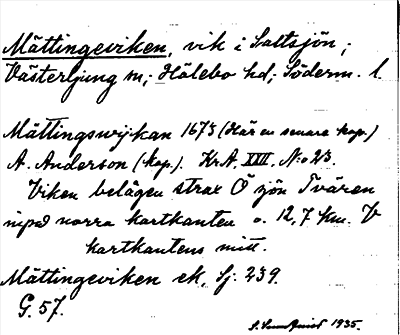 Mättingeviken, vik i Saltsjön;
Västerljung sn; Hölebo hd; Söderm. l.
Mättingswijkan 1673 (Här en senare kop.)
A. Anderson (kop.). KrA. XXII, N:o 23.
Viken belägen strax Ö sjön Tvären
inpå norra kartkanten o. 12,7 km. V
kartkantens mitt.
Mättingeviken ek, Sj: 239.
G. 57.
1935.